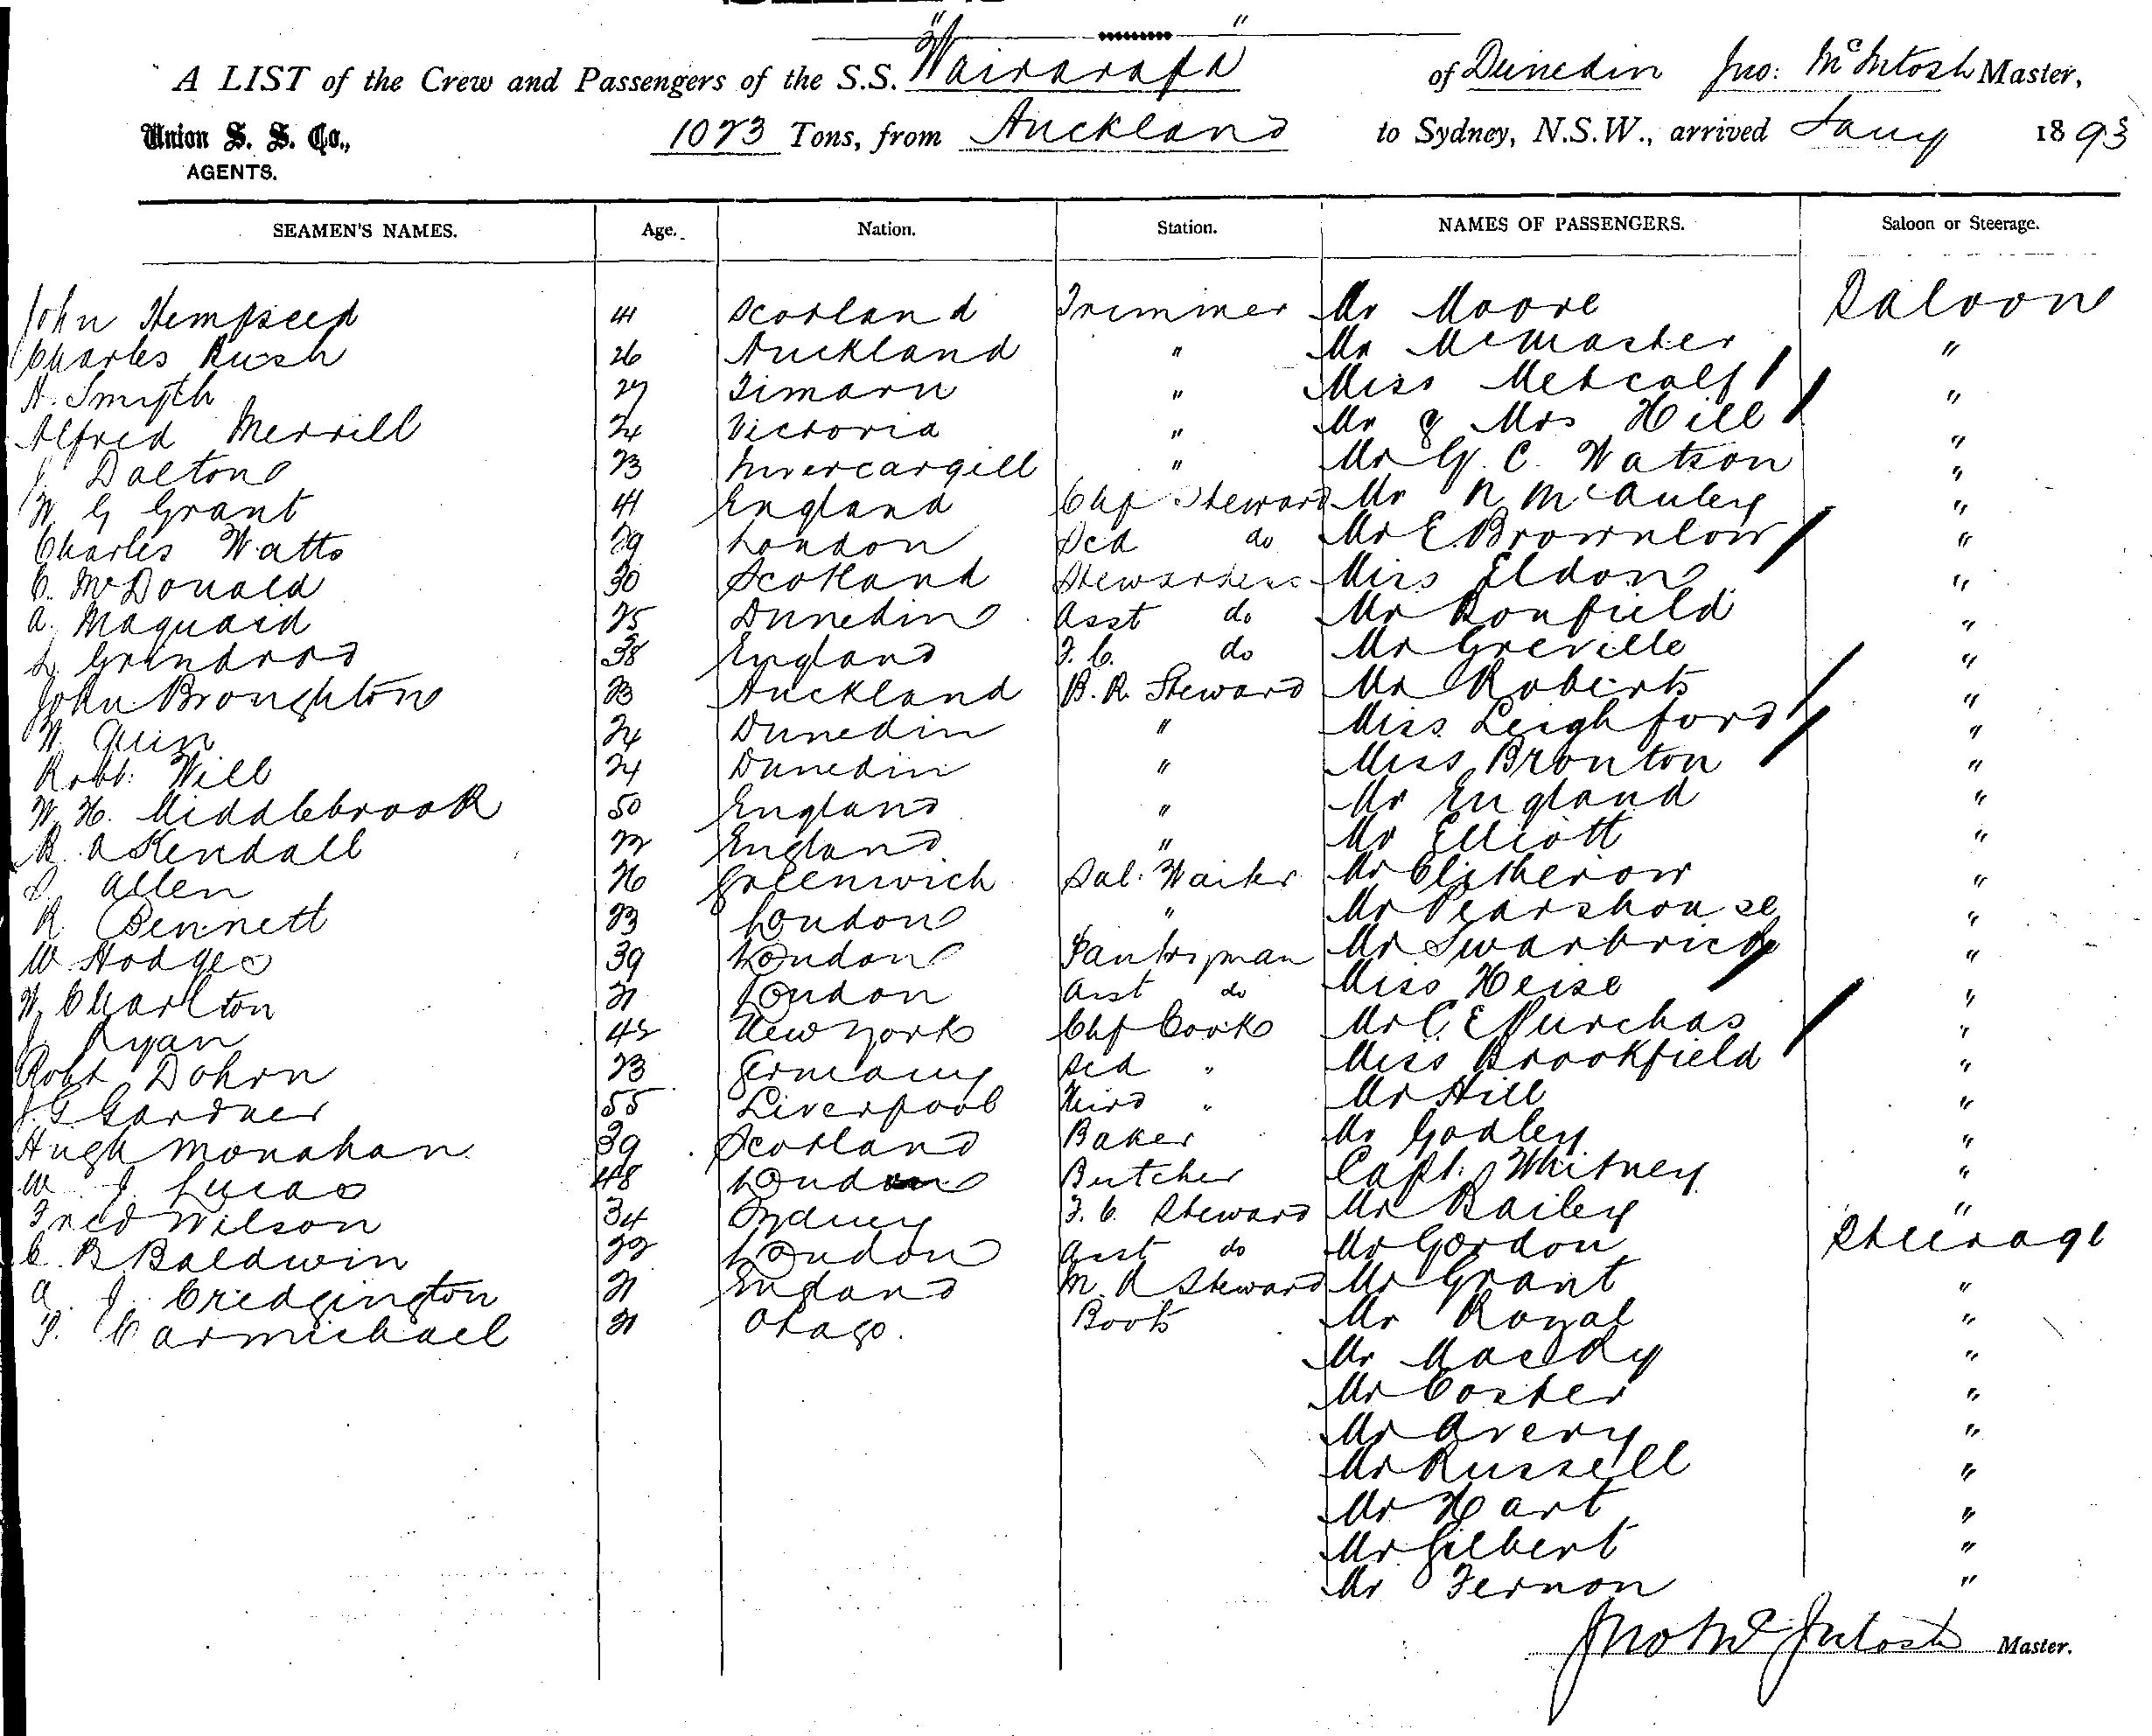 A LIST of the Crew and Passengers of the S.S. "Wairarapa" of Dunedin Jno: McIntosh Master,
Union S. S. Co., 1023 Tons, from Auckland to Sydney, N.S.W., arrived Jany 1893
AGENTS.
SEAMEN'S NAMES. Age. Nation. Station. NAMES OF PASSENGERS. Saloon or Steerage.
John Hempseed 41 Scotland Trimmer Mr Moore Saloon
Charles Rush 26 Auckland " Mr McMaster "
A. Smyth 27 Timaru " Miss Metcalf "
Alfred Merrill 24 Victoria " Mr & Mrs Hill "
J. Dalton 23 Invercargill " Mr G. C. Watson "
W G Grant 41 England Chf Steward Mr R McAuley "
Charles Watts 29 London Scd do Mr E. Brownlow "
C. McDonald 30 Scotland Stewardess Miss Eldon "
A. Maquaid 25 Dunedin Asst do Mr Bonfield "
L. Grindrod 38 England F. C. do Mr Greville "
John Broughton 23 Auckland B. R. Steward Mr Roberts "
W. Quin 24 Dunedin " Miss Leighford "
Robt. Will 24 Dunedin " Miss Bronton "
W. H. Middlebrook 50 England " Mr England "
R. A Kendall 22 England " Mr Elliott "
S. Allen 26 Greenwich Sal. Waiter Mr Clitherow "
R. Bennett 23 London " Mr Pearshouse "
W. Hodges 39 London Pantryman Mr Swarbrick "
W. Charlton 21 London Asst do Miss Heise "
J. Ryan 42 New York Chf Cook Mr C E Purchas "
Robt Dohrn 23 Germany Scd " Miss Brookfield "
J. G Gardner 55 Liverpool Third " Mr Hill "
Hugh Monahan 39 Scotland Baker Mr Godley "
W. J. Lucas 48 London Butcher Capt. Whitney "
Fred Wilson 34 Sydney F. C. Steward Mr Bailey "
C. B Baldwin 22 London Asst do Mr Gordon Steerage
A. J. Credgington 21 England M. R Steward Mr Grant "
P. Carmichael 21 Otago. Boots Mr Royal "
Mr "
Mr Coster "
Mr Avery "
Mr Russell "
Mr Hart "
Mr Gilbert "
Mr Fernon "
Jno McIntosh Master.